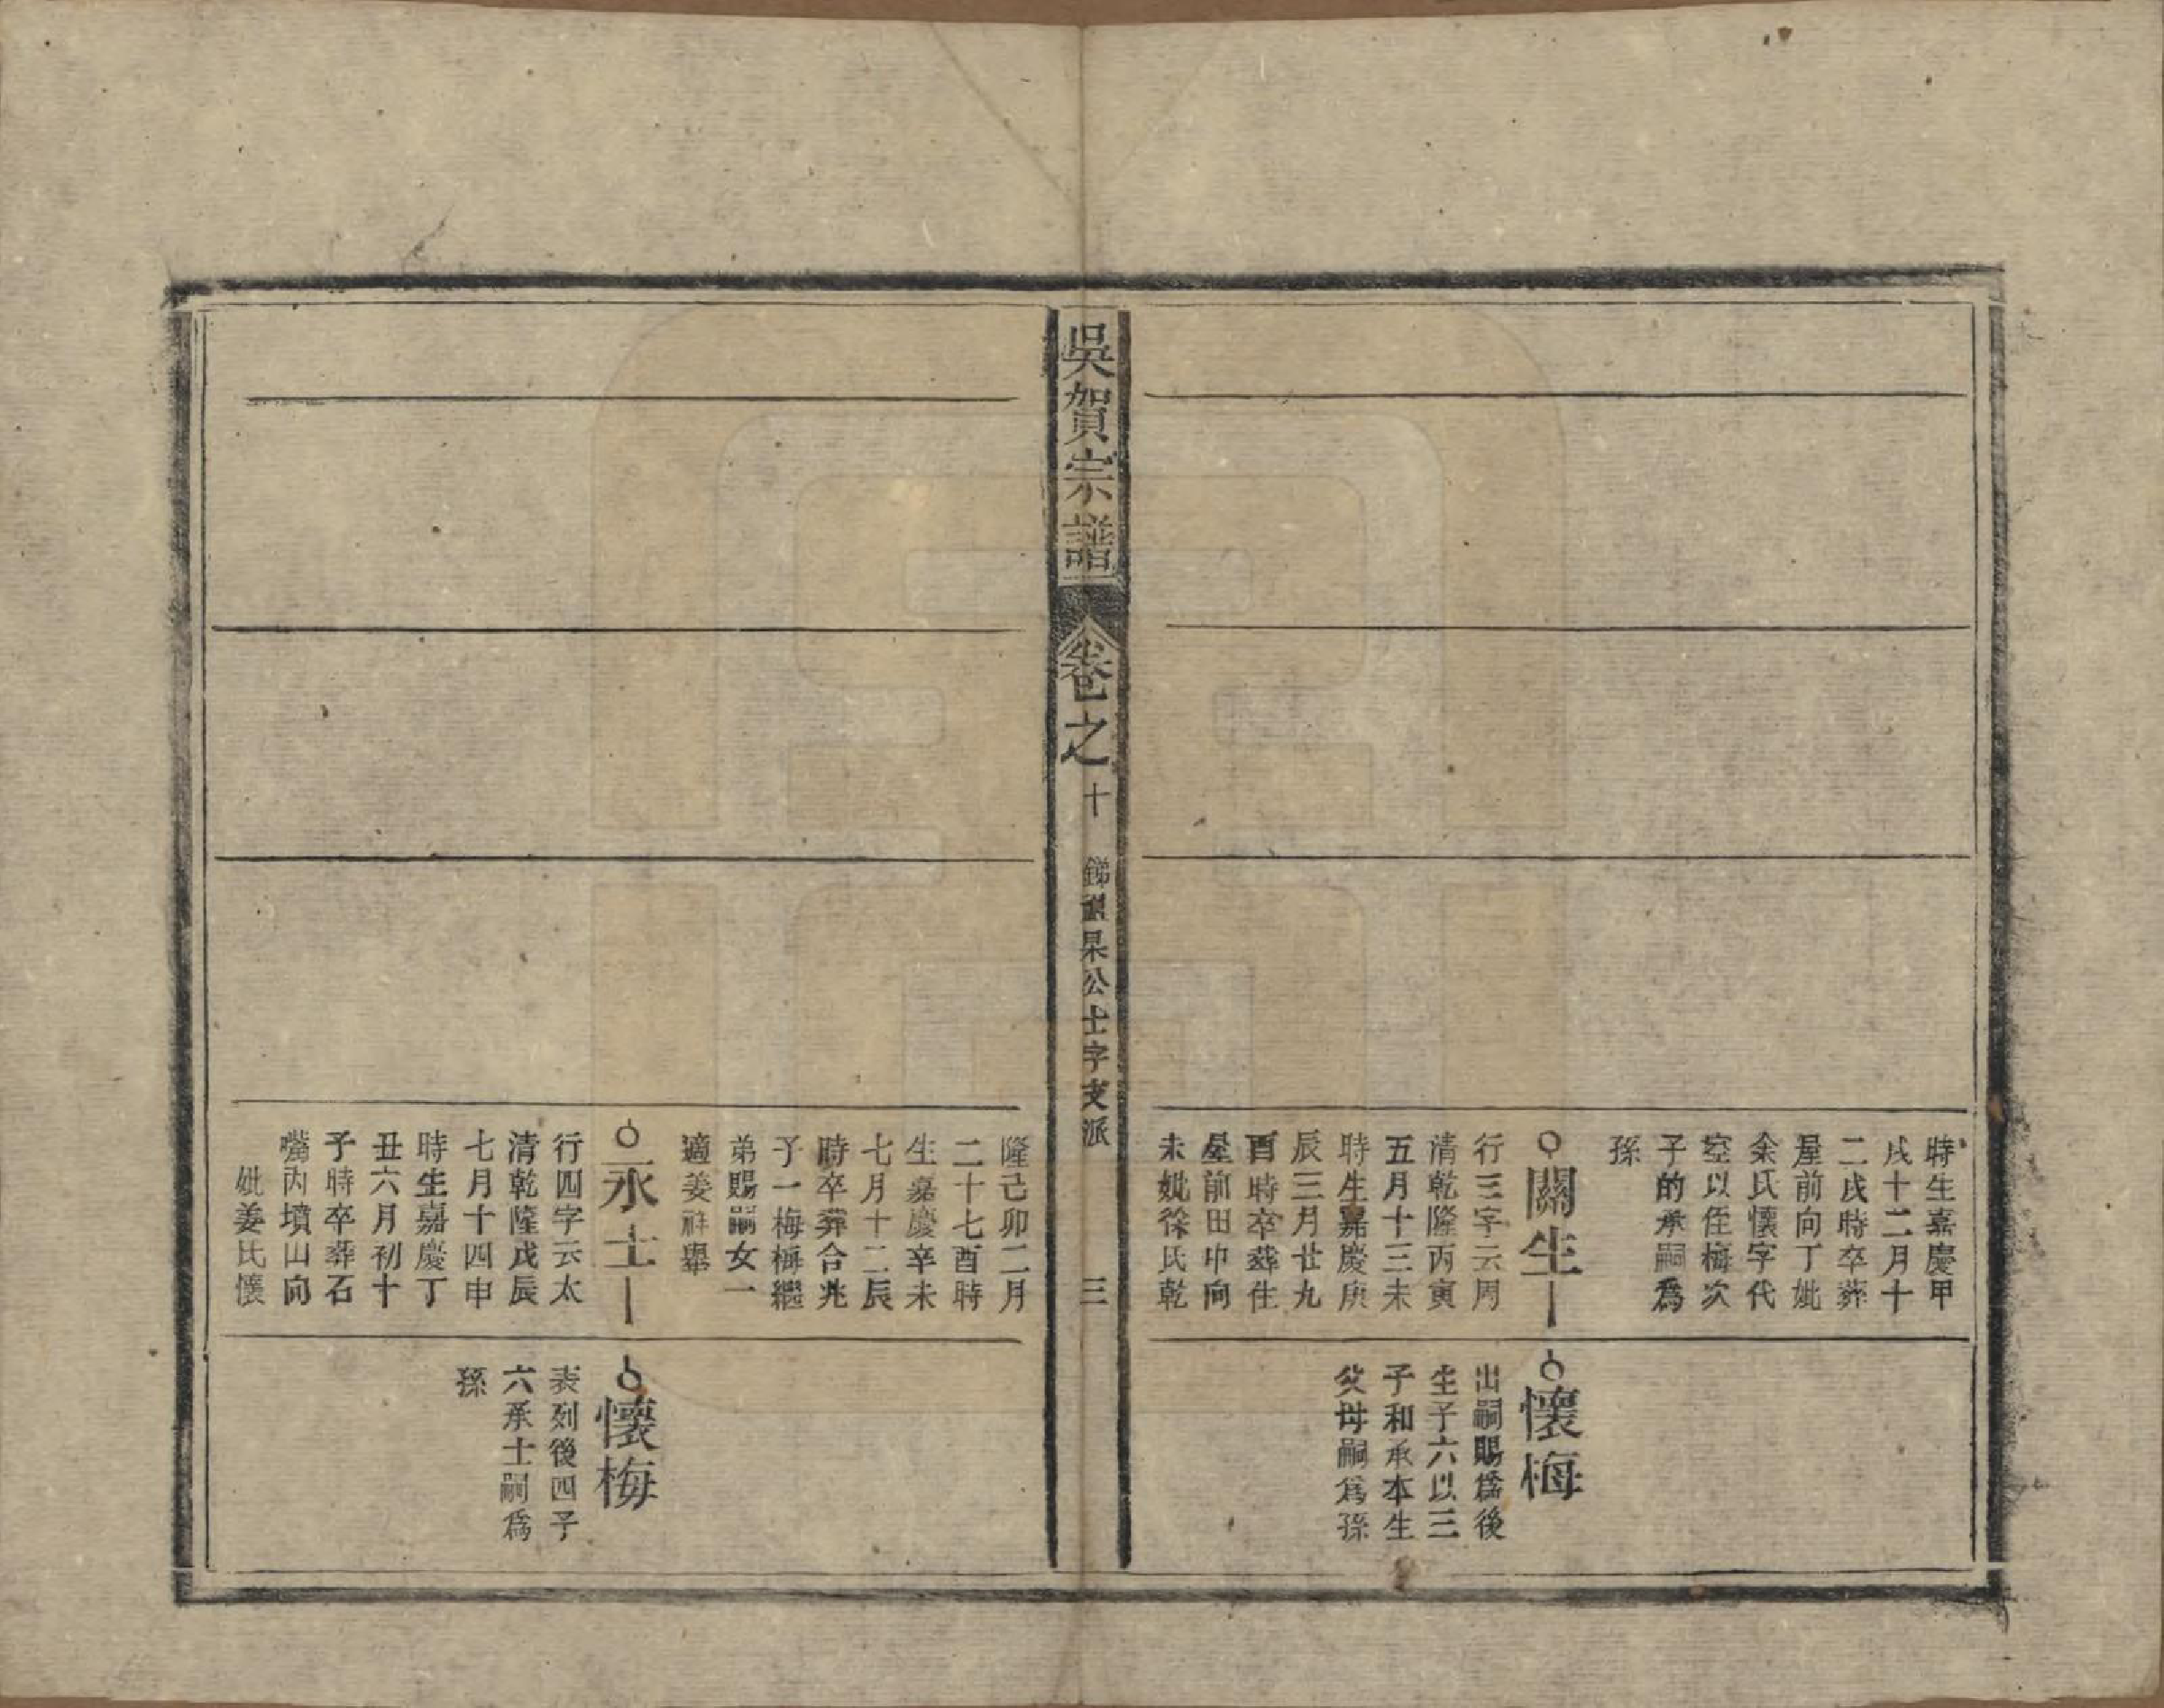 時生嘉慶甲
戌十二月十
二戌時卒葬
屋前向丁妣
余氏懷字代
空以侄梅次
子的承嗣爲
孫
關生
行三字云周
清乾隆丙寅
五月十三未
時生嘉慶庚
辰三月廿九
酉時卒葬住
屋前田中向
未妣徐氏乾
懷梅
出嗣賜爲後
生子六以三
子和承本生
父母嗣爲孫
吳賀宗譜
卷之十
錦祖杲公士字支派
三
隆己卯二月
二十七酉時
生嘉慶辛未
七月十二辰
時卒葬合兆
子一梅梅繼
弟賜嗣女一
適姜祥舉
永士
行四字云太
清乾隆戊辰
七月十四申
時生嘉慶丁
丑六月初十
子時卒葬石
嘴內墳山向
妣姜氏懷
懷梅
表列後四子
六承士嗣爲
孫